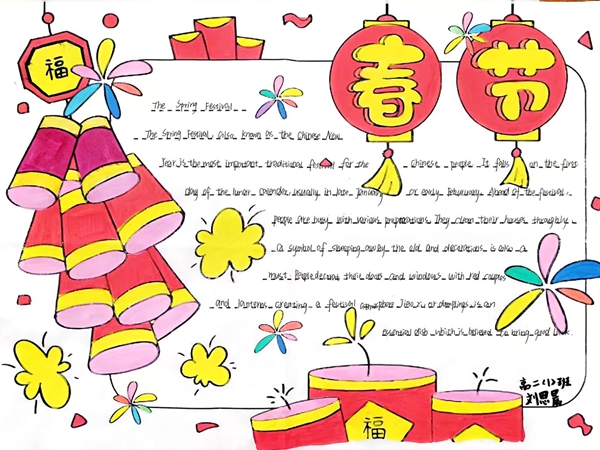 福
春节
The Spring Festival
The Spring Festival, also known as the Chinese New
Year is the most important traditional festival for the chinese people. It falls on the first
day of the lunar calendar, usually in late January or early February. Ahead of the festival,
people are busy with various preparations. They clean their houses throughly,
a symbol of sweeping away the old and decorations is also a
must. People decorate their doors and windows with red couplets
and lanterns creating a festival Jiao zi or dumplings is an
essential dish which is believed to bring good luck.
福
高二(1)班
刘思